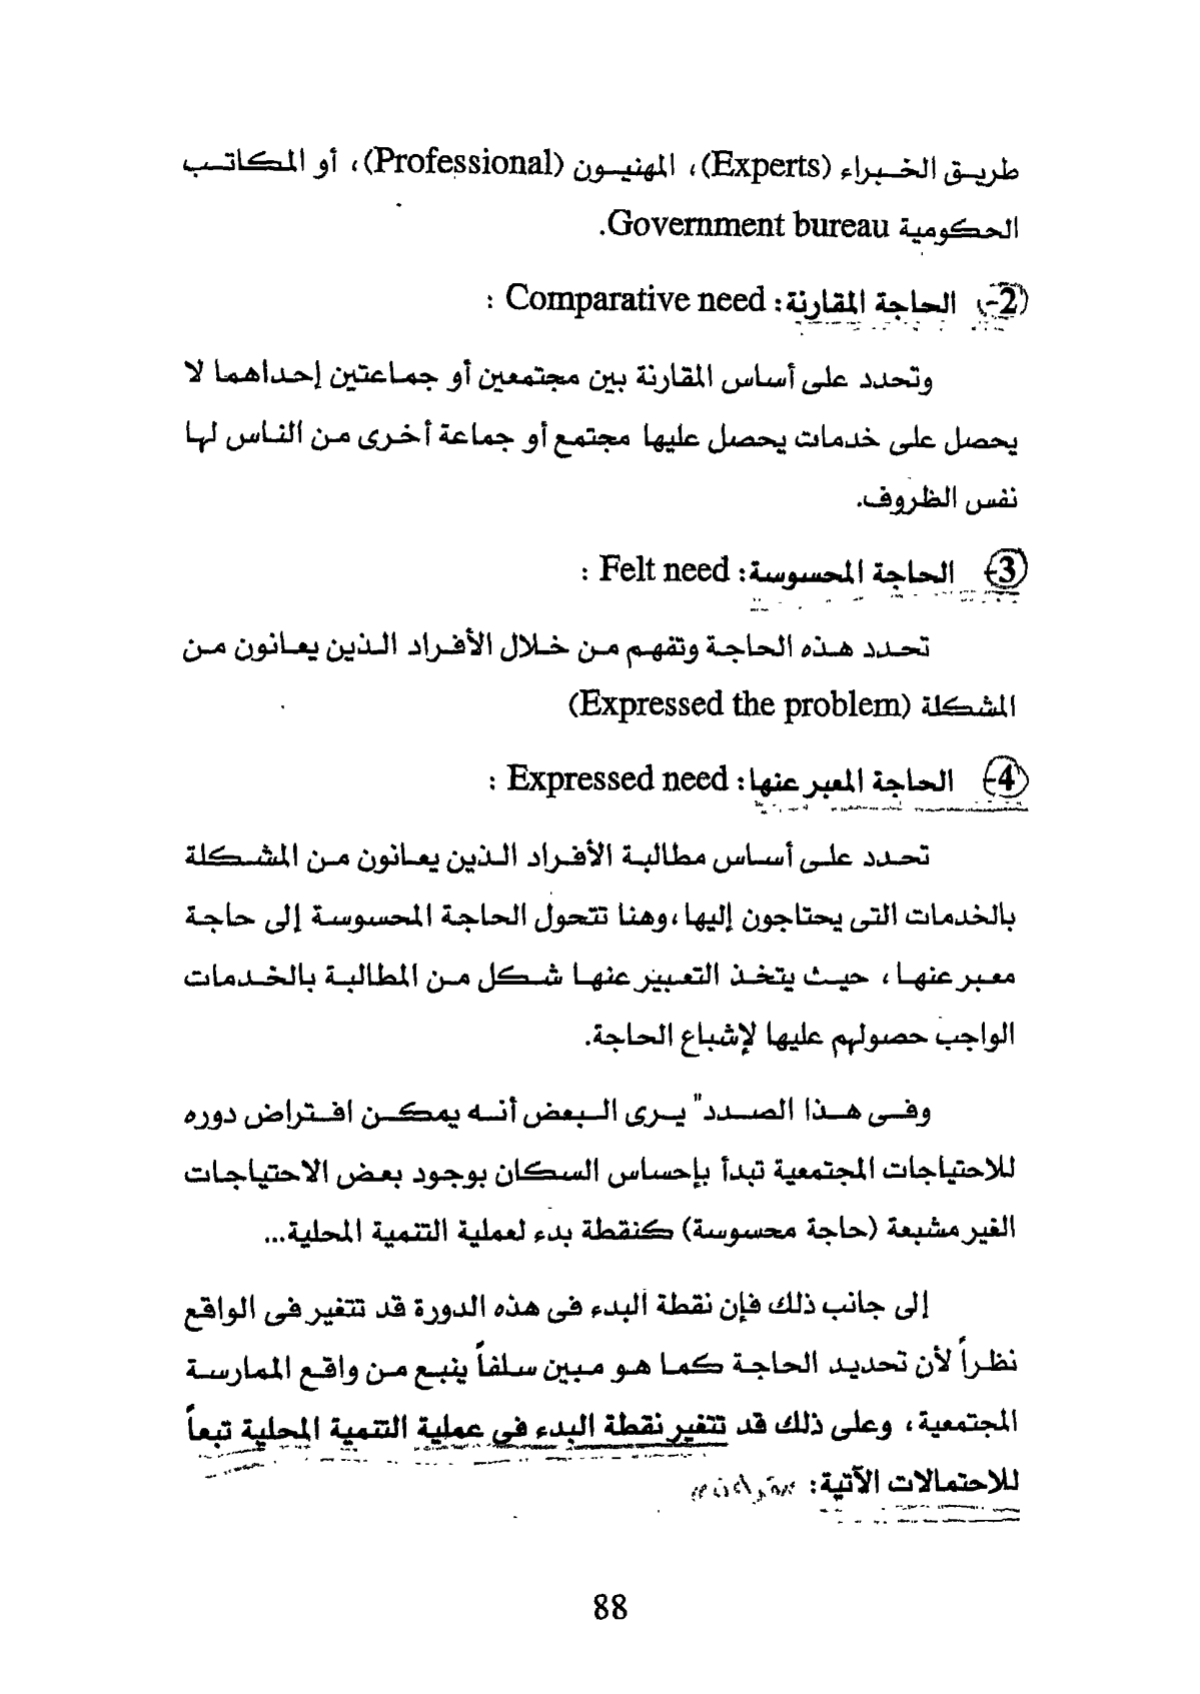 طريق الخبراء (Experts)، المهنيون (Professional)، أو المكاتب
الحكومية Government bureau.
2- الحاجة المقارنة: Comparative need :
وتحدد على أساس المقارنة بين مجتمعين أو جماعتين إحداهما لا
يحصل على خدمات يحصل عليها مجتمع أو جماعة أخرى من الناس لها
نفس الظروف.
3- الحاجة المحسوسة: Felt need :
تحدد هذه الحاجة وتفهم من خلال الأفراد الذين يعانون من
المشكلة (Expressed the problem)
4- الحاجة المعبر عنها: Expressed need :
تحدد على أساس مطالبة الأفراد الذين يعانون من المشكلة
بالخدمات التى يحتاجون إليها، وهنا تتحول الحاجة المحسوسة إلى حاجة
معبر عنها، حيث يتخذ التعبير عنها شكل من المطالبة بالخدمات
الواجب حصولهم عليها لإشباع الحاجة.
وفى هذا الصدد" يرى البعض أنه يمكن افتراض دوره
للاحتياجات المجتمعية تبدأ بإحساس السكان بوجود بعض الاحتياجات
الغير مشبعة (حاجة محسوسة) كنقطة بدء لعملية التنمية المحلية...
إلى جانب ذلك فإن نقطة البدء فى هذه الدورة قد تتغير فى الواقع
نظراً لأن تحديد الحاجة كما هو مبين سلفاً ينبع من واقع الممارسة
المجتمعية، وعلى ذلك قد تتغير نقطة البدء فى عملية التنمية المحلية تبعاً
للاحتمالات الآتية:
88